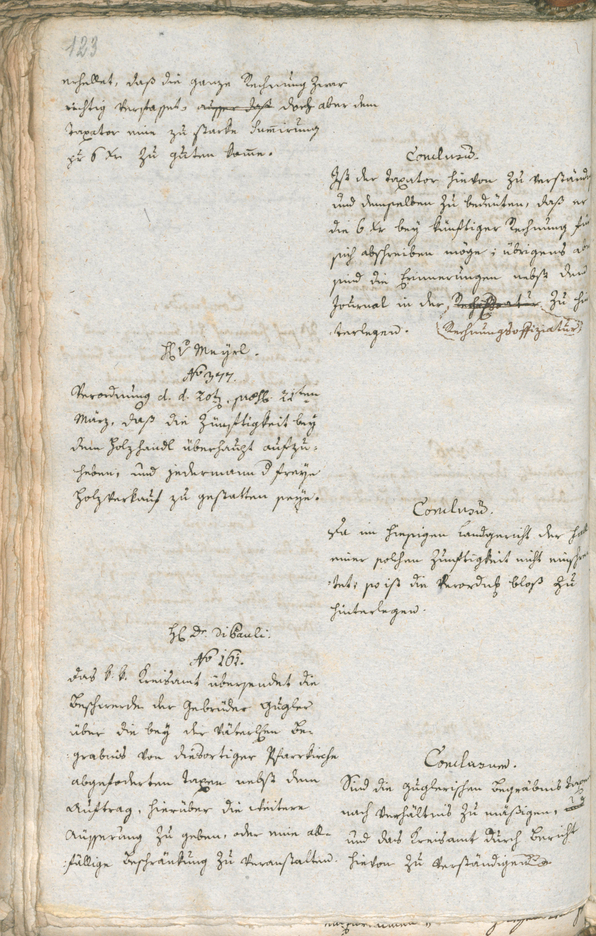 123
erhellet, daß die ganze Rechnung zwar
richtig verfasset, ausser daß doch aber dem
Taxator eine zu starke Sumirung
zu 6 Xr zu guten kome.
Conclusū.
Ist der Taxator hievon zu verständ
und demselben zu bedeuten, daß er
die 6 Xr bey künftiger Rechnung für
sich abschreiben möge; übrigens ab
sind die Erinnerungen nebst dem
Journal in der Registratur zu hi
terlegen. (Rechnungsoffiziatur)
H. v Meyrl.
No 377.
Verordnung d. d. 20t, 22ten
März, daß die Zünftigkeit bey
dem Holzhandl überhaupt aufzu-
heben, und jedermann d freye
Holzverkauf zu gestatten seye.
Conclusū.
Da im hiesigen Landgericht der
einer solchen Zünftigkeit nicht
tet; so ist die Verordng bloß zu
hinterlegen.
H. Dr. diPauli.
No 161.
Das k. k. Kreisamt übersendet die
Beschwerde der Gebrüder Gugler
über die bey der väterlchen Be-
gräbnis von diesortiger Pfarrkirche
abgeforderten Taxen nebst dem
Auftrag, hierüber die weitere
Äusserung zu geben, oder eine all-
fällige Beschränkung zu veranstalten.
Conclusum.
Sind die Guglerischen Begräbnis Taxen
nach Verhältnis zu mässigen, und
und das Kreisamt durch Bericht
hievon zu verständigen.